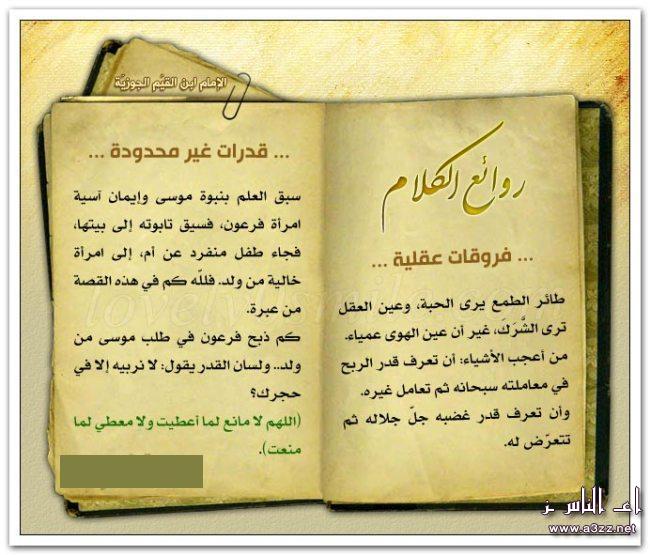 الإمام ابن القيّم الجوزيّة
روائع الكلام
... فروقات عقلية ...
طائر الطمع يرى الحبة، وعين العقل
ترى الشَّرَكَ، غير أن عين الهوى عمياء.
من أعجب الأشياء: أن تعرف قدر الربح
في معاملته سبحانه ثم تعامل غيره.
وأن تعرف قدر غضبه جلّ جلاله ثم
تتعرّض له.
... قدرات غير محدودة ...
سبق العلم بنبوة موسى وإيمان آسية
امرأة فرعون، فسيق تابوته إلى بيتها،
فجاء طفل منفرد عن أم، إلى امرأة
خالية من ولد. فللّه كم في هذه القصة
من عبرة.
كم ذبح فرعون في طلب موسى من
ولد.. ولسان القدر يقول: لا نربيه إلا في
حجرك؟
(اللهم لا مانع لما أعطيت ولا معطي لما
منعت).
الناس
www.a3zz.net